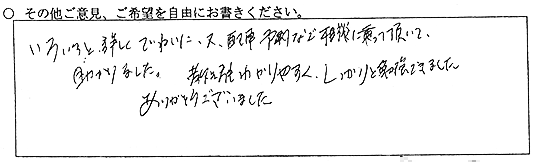 ○ その他ご意見、ご希望を自由にお書きください。
いろいろと詳しくていねいに、又、予約など相談に乗って頂いて、
助かりました。 わかりやすく、しっかりと勉強できました
ありがとうございました